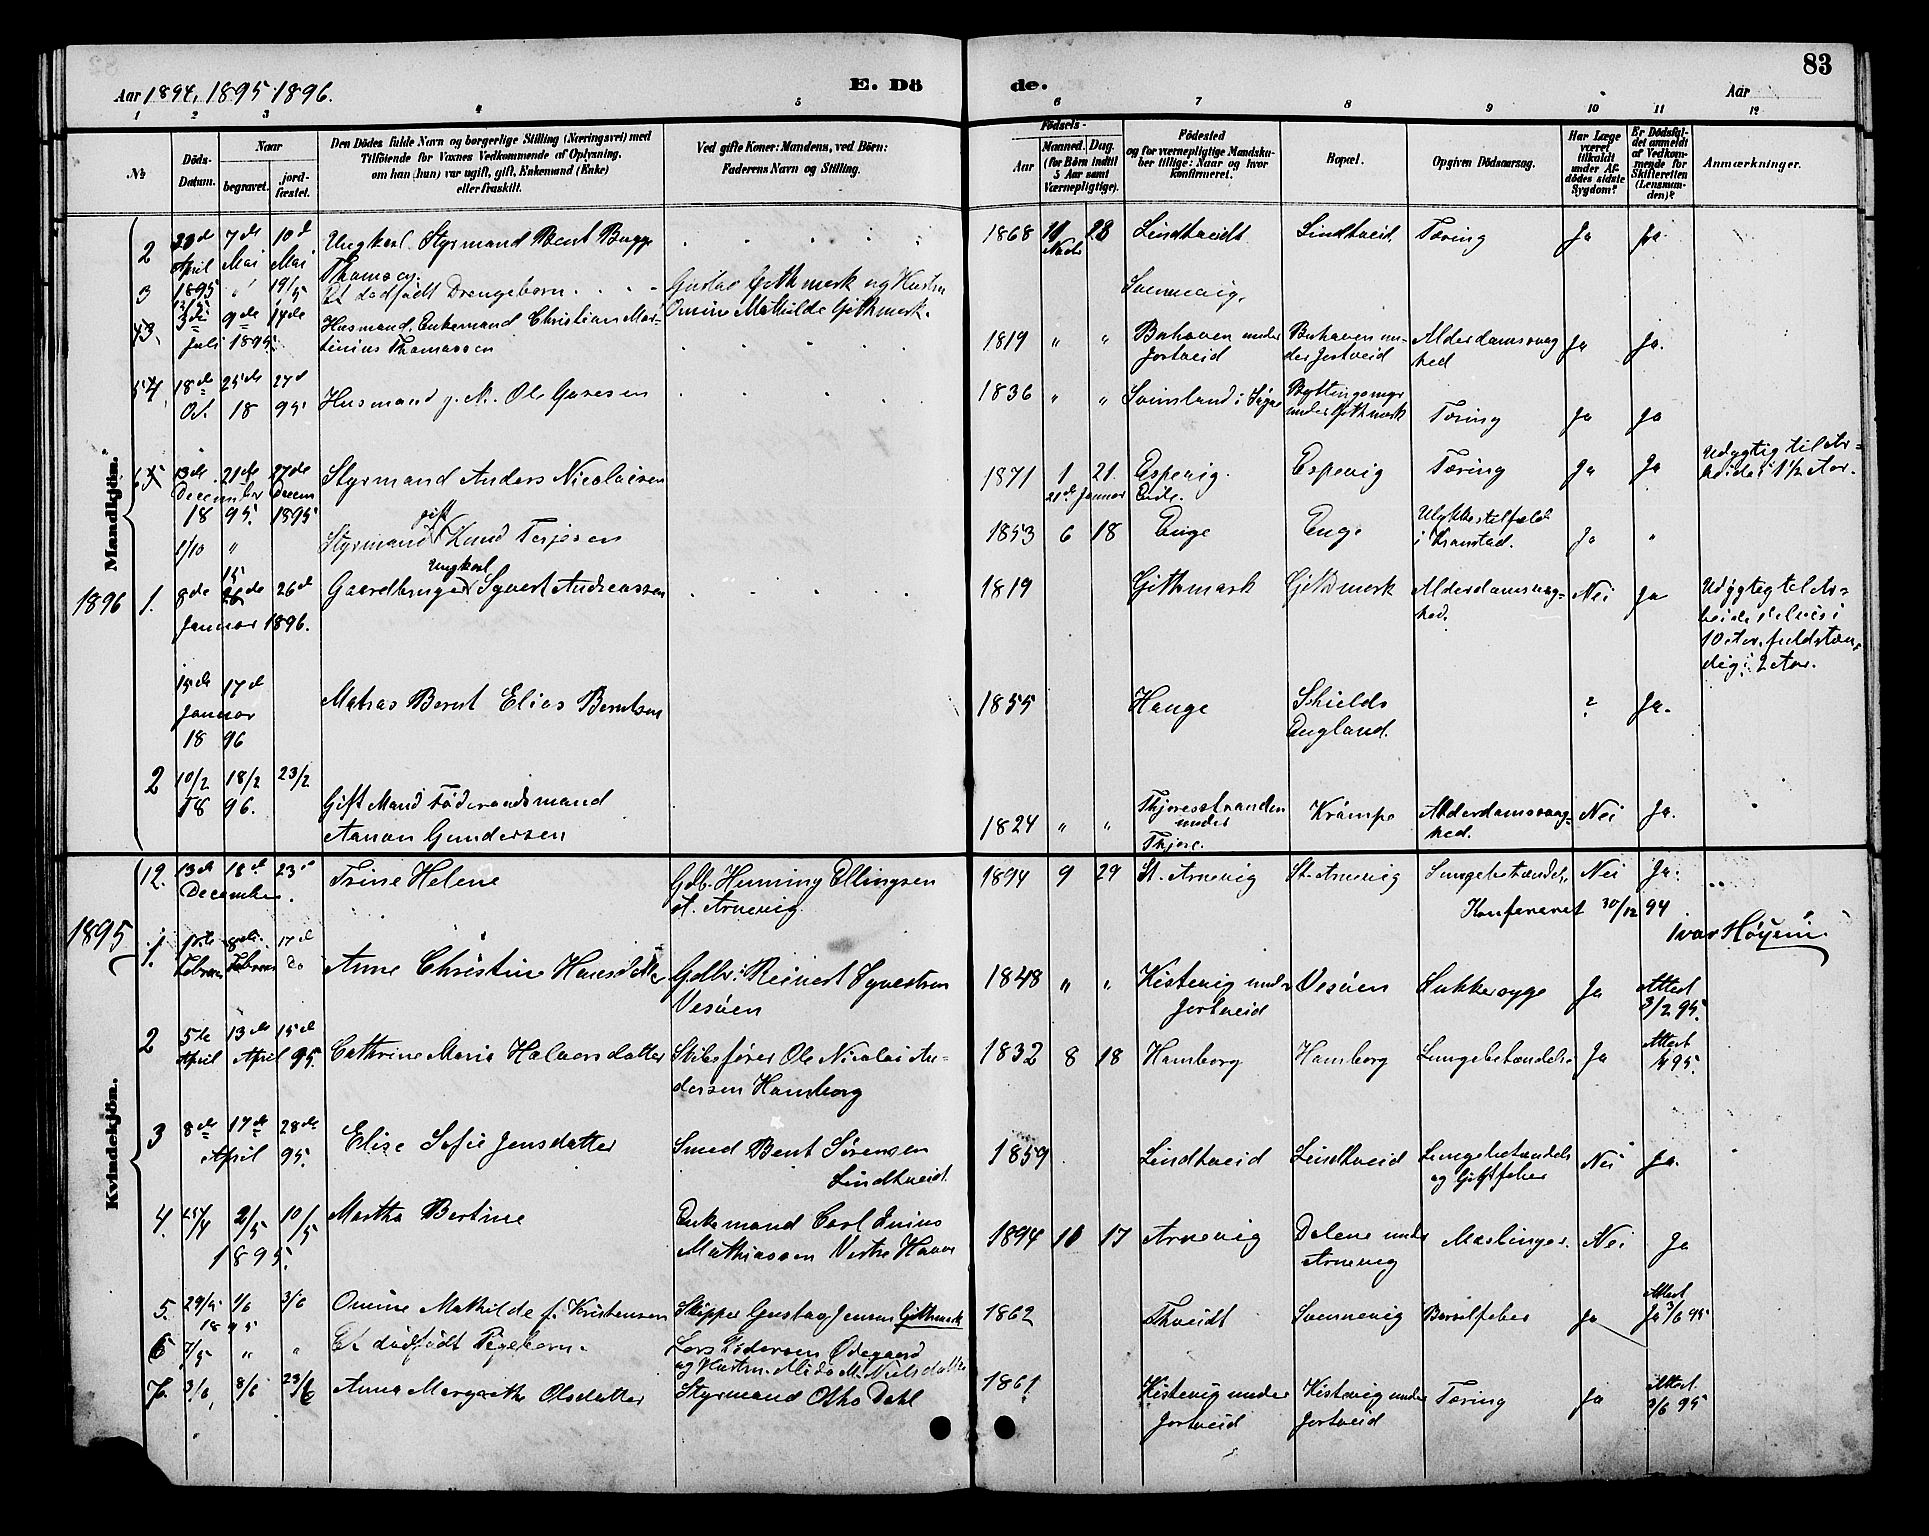 83
Aar 1894, 1895 1896.
E. Dö
de.
Aar
1 2 3 4 5 6 7 8 9 10 11 12
№
Döds-Datum.
Naar
begravet.
jord-fæstet.
Den Dödes fulde Navn og borgerlige Stilling (Næringsvei) med
Tilföiende for Voxnes Vedkommende af Oplysning,
om han (hun) var ugift, gift, Enkemand (Enke)
eller fraskilt.
Ved gifte Koner: Mandens, ved Börn:
Faderens Navn og Stilling.
Födsels-
Aar
Maaned. Dag.
(for Börn indtil
5 Aar samt
Værnepligtige).
Födested
og for værnepligtige Mandska-
ber tillige: Naar og hvor
konfirmeret.
Bopæl.
Opgiven Dödsaarsag.
Har Læge
været
tilkaldt
under Af-
dödes sidste
Sygdom?
Er Dödsfal-
det anmeldt
af Vedkom-
mende for
Skifteretten
(Lensman-
den)?
Anmærkninger.
Mandkjön.
2 April 7de Mai 10d Mai Ungkarl. Styrmand Bent Bugge Thomasen 1868 28 Lindtveidt Lindtveid Tæring Ja Ja
3 1895 " 19/5 Et dødfødt Drengebarn Gustav Githmark og Hustru
Omine Mathilde Githmark. Svennevig.
3de Juli 9de 1895 14de Husmand, Enkemand Christian Mar-
tinius Thomassen 1819 " " Buhaven under Jortveid Buhaven un-
der Jortveid Alderdomssvag
hed Ja Ja.
18de Oct. 25de 18 27d 95 Husmand Ole 1836 " " i Søgne under Githmark Tæring Ja Ja
13de December 21de 27de Decem 1895 Styrmand Anders Nicolaisen 1871 1 21. Espevig. Espevig Tæring Ja Ja Udygtig til Ar-
beide i 1½ Aar.
21de Januar
1/10 " Styrmand gift Knud Terjesen 1853 6 18 Enge Enge Ulykkestilfæld
i Ja "
1896 1. 8de Januar 26d 1896. Gaardbruger Ungkarl Syvert Andreassen 1819 Githmark Githmark Alderdomssvag-
hed. Nei Ja Udygtig til Ar-
beide delvis i
10 Aar, fuldstæn-
dig i 2 Aar.
15de Januar 17d 18 96 Matros Bernt Elias Berntsen 1855 Hauge Shields
England. ? Ja.
2 10/2 18/2 23/2 18 96. Gift Mand Føderaadsmand
Aanon Gundersen 1824 " " Thjorestranden under
Thjore. Krampe Alderdomssvag-
hed. Nei Ja.
Kvindekjön.
12. 13d 18d 23d December. Trine Helene Gdb. Henning Ellingsen
St. Arnevig 1894 9 29 St. Arnevig St. Arnevig Lungebetændelse Nei Ja.
Konfereret 30/12 94
Ivar Høyem
1895 1. Februar 8de Februar 17d do Anne Christine Hansdatter Gdbr. Reinert Syvertsen
Vesøen 1848 " " Kistevig under
Jortveid Vesøen Sukkersyge Ja Attest
3/2 95.
2 5te April 13de April 15d 95. Cathrine Maria Halvorsdatter Skibsfører Ole Nicolai An-
dersen Hamborg 1832 8 18 Hamborg Hamborg Lungebetændelse Ja Attest
95.
3 8de April 17de 28de 95. Elise Sofie Jensdatter Smed Bent Sørensen
Lindtveid. 1859 Lindtveid Lindtveid Lungebetændelse
og Nei Ja.
4. 25/4 2/5 10/5 1895. Martha Bertine Enkemand Carl Junius
Mathiassen Vestre 1894 10 17 Arnevig Dalene under
Arnevig Mæslinger. Nei Ja
5. 29/5 1/6 3/6 1895 Omine Mathilde f. Kristensen Skipper Gustav Jensen Githmark 1862 Thveidt Svennevig Barselfeber Ja Attest
Ja 3/6 95
6 7/5 " " Et dødfødt Pigebarn. Lars Pedersen Ødegaard
og Hustru Nielsdatter
7. 3/6, 8/6 23/6 Anna Margrethe Olsdatter Styrmand Otto Dahl 1861 Kistevig under
Jortveid Kistevig under
Jortveid Tæring Ja Attest
3/6 95